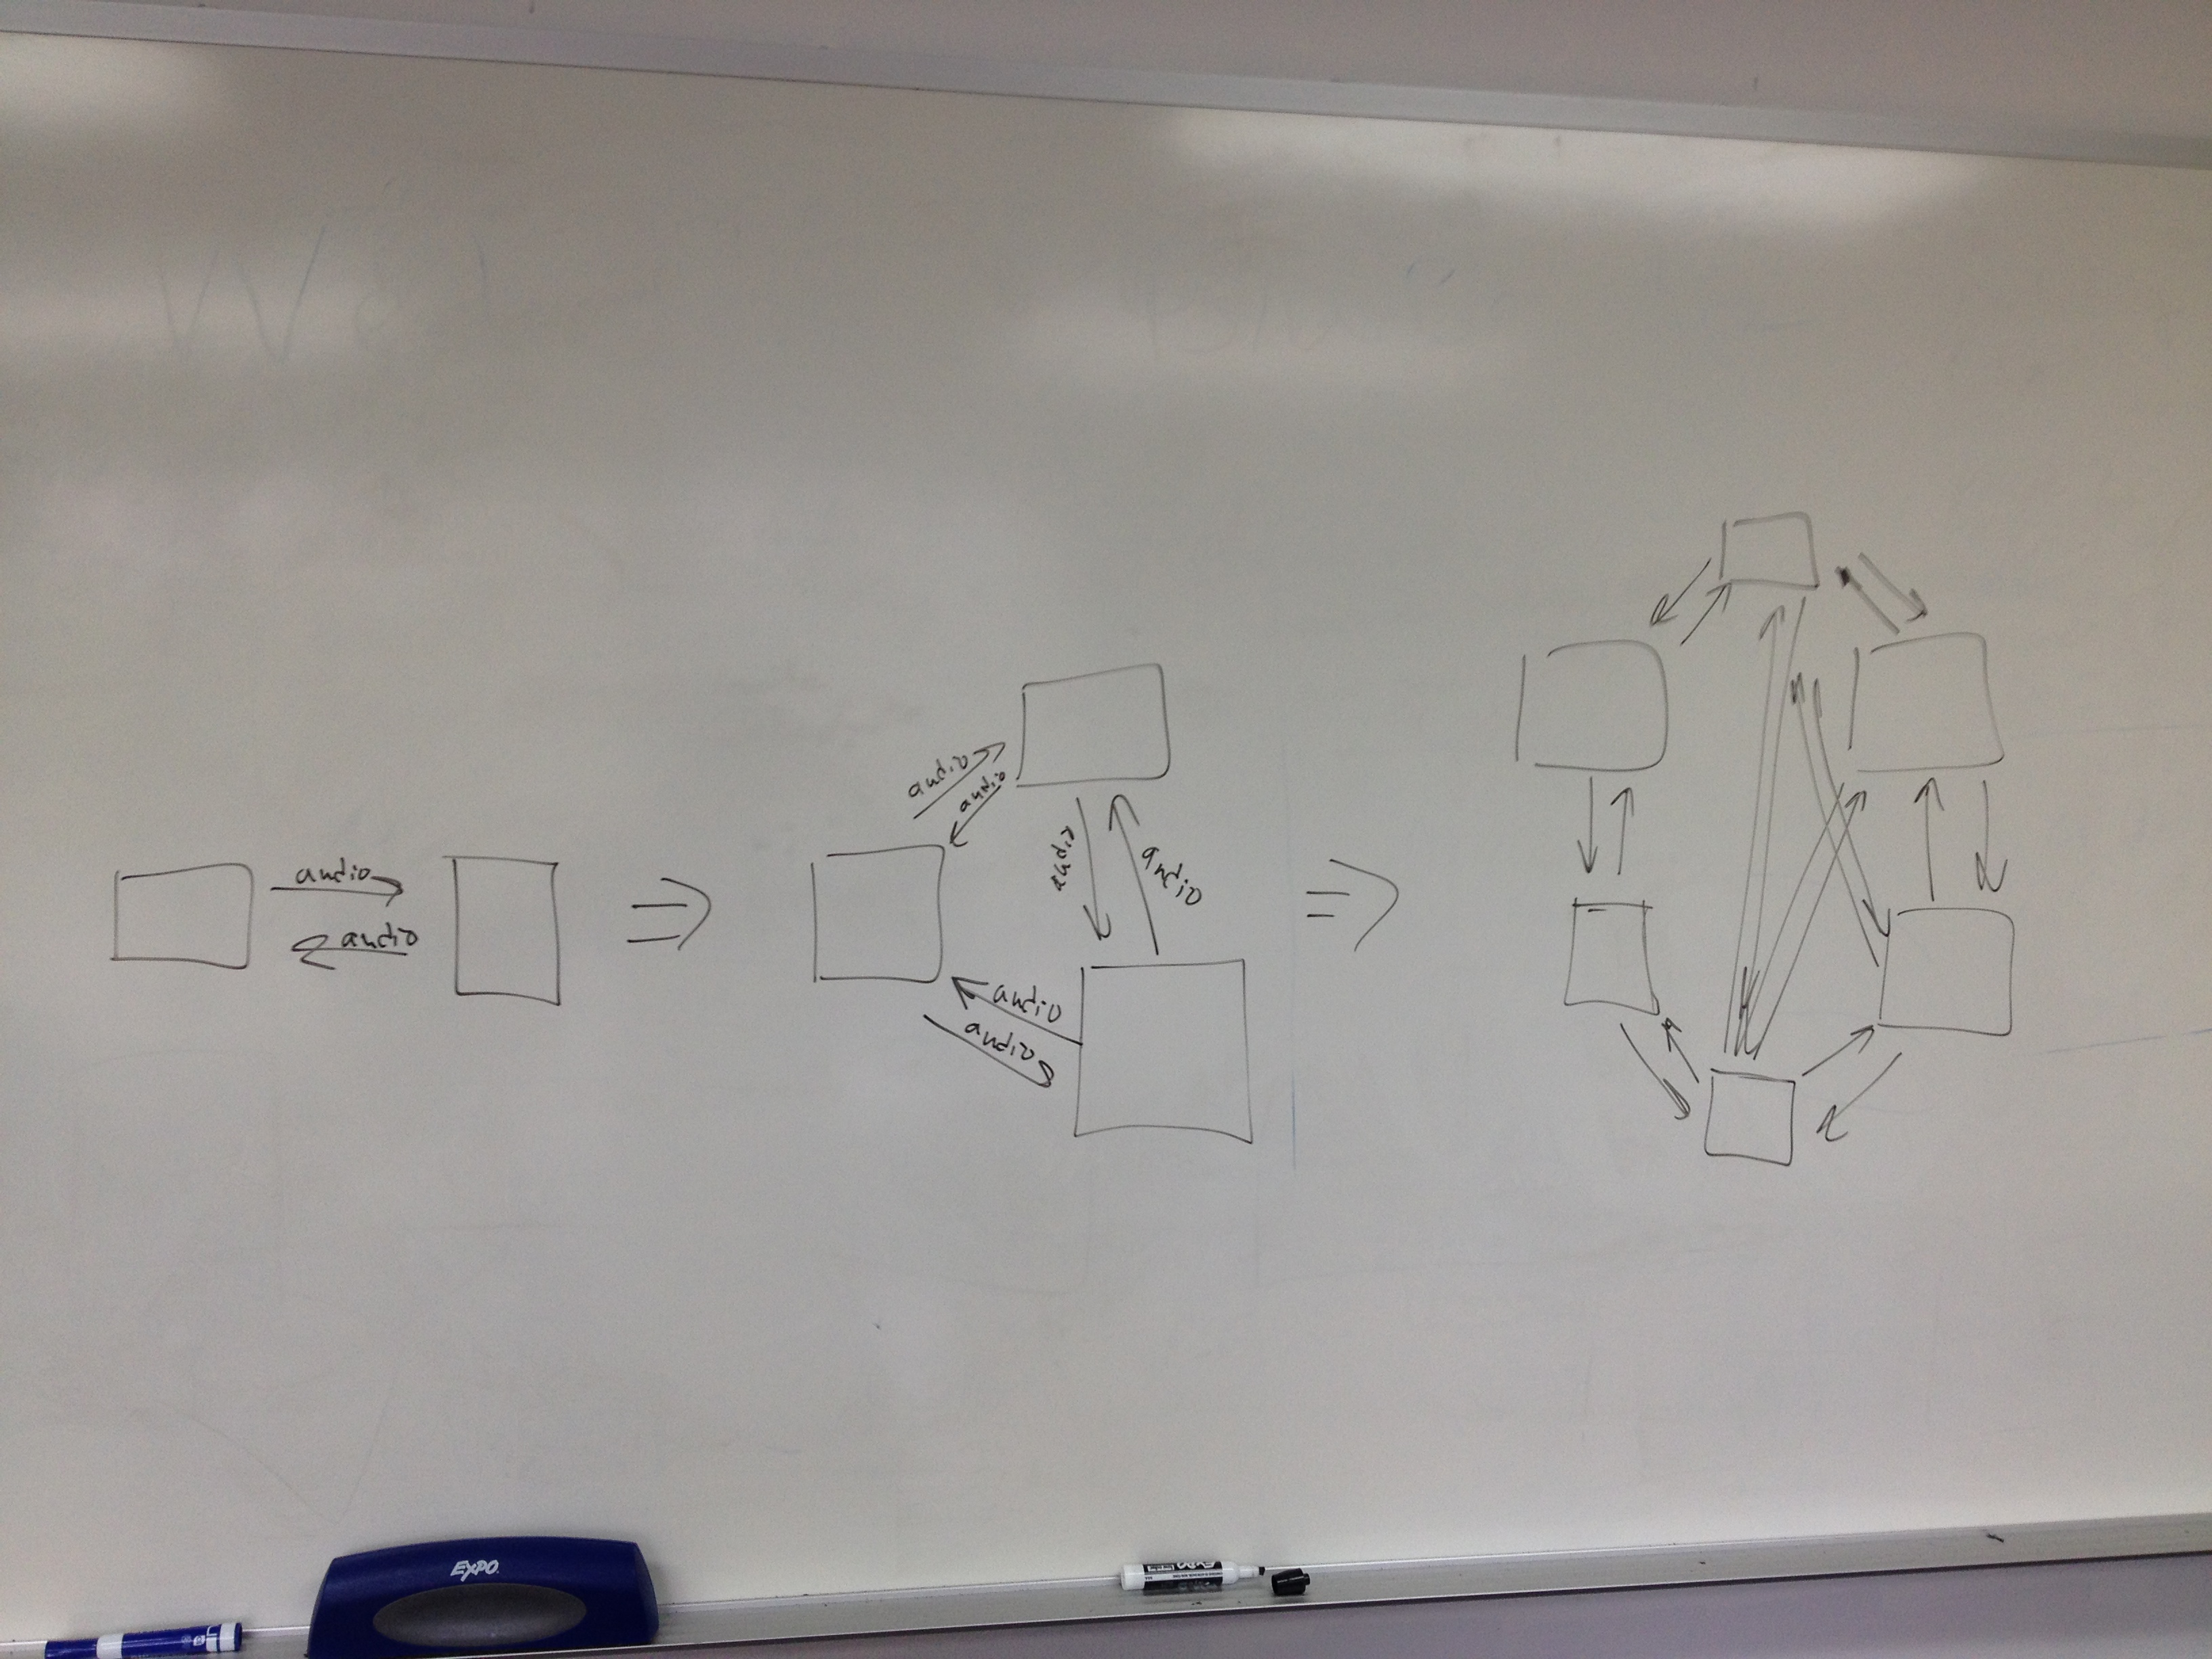 audio
audio
audio
audio
audio
audio
audio
audio
EXPO
EXPO